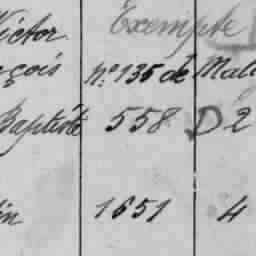 Victor Exempte
nçois nº 135 de Mala
Baptiste 558 D 2
in 1651 4